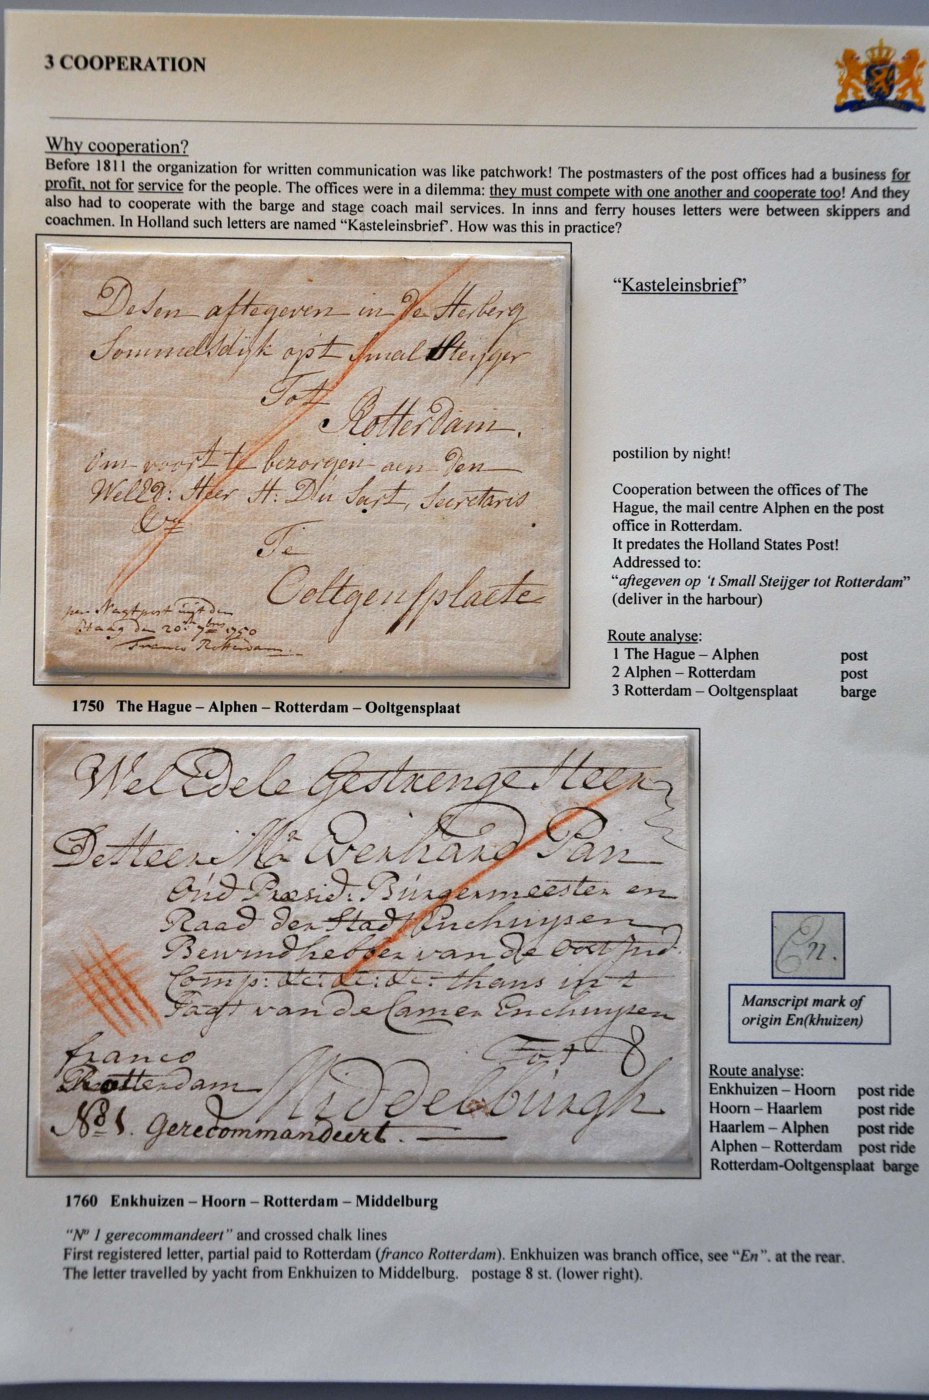 3 COOPERATION
Why cooperation?
Before 1811 the organization for written communication was like patchwork! The postmasters of the post offices had a business for
profit, not for service for the people. The offices were in a dilemma: they must compete with one another and cooperate too! And they
also had to cooperate with the barge and stage coach mail services. In inns and ferry houses letters were between skippers and
coachmen. In Holland such letters are named "Kasteleinsbrief'. How was this in practice?
Desen aftegeven in de Herberg
Sommelsdijk op't Smal Steijger
Tot
Rotterdam.
om voort te bezorgen aen den
WelEd: Heer H: Du Sart, Secretaris
&a
Te
Ooltgensplaete
per Nagtpost uijt den
Haag den 20n 7br 1750
Franco Rotterdam
"Kasteleinsbrief"
postilion by night!
Cooperation between the offices of The
Hague, the mail centre Alphen en the post
office in Rotterdam.
It predates the Holland States Post!
Addressed to:
"aftegeven op 't Small Steijger tot Rotterdam"
(deliver in the harbour)
Route analyse:
1 The Hague – Alphen post
2 Alphen – Rotterdam post
3 Rotterdam – Ooltgensplaat barge
1750 The Hague – Alphen – Rotterdam – Ooltgensplaat
Wel Edele Gestrenge Heer
De Heer Mr Everhard Pan
Oud Præsid: Burgermeester en
Raad der Stad Enchuysen
Bewindhebber van de Oost Ind:
Comp: &c: &c: &c: thans in't
Jagt van de Camer Enchuysen
Tot 8
franco
Rotterdam
Middelburgh
No 1. gerecommandeert.
En.
Manscript mark of
origin En(khuizen)
Route analyse:
Enkhuizen – Hoorn post ride
Hoorn – Haarlem post ride
Haarlem – Alphen post ride
Alphen – Rotterdam post ride
Rotterdam-Ooltgensplaat barge
1760 Enkhuizen – Hoorn – Rotterdam – Middelburg
"No 1 gerecommandeert" and crossed chalk lines
First registered letter, partial paid to Rotterdam (franco Rotterdam). Enkhuizen was branch office, see "En". at the rear.
The letter travelled by yacht from Enkhuizen to Middelburg. postage 8 st. (lower right).